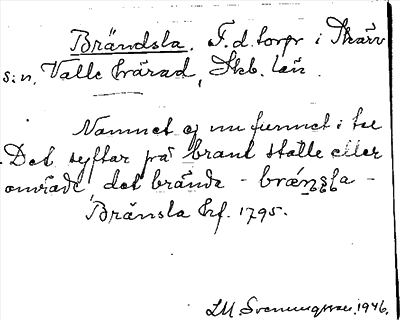 Brändsla. F. d. torp i Skärv
s:n, Valle härad, Skb. län.
Namnet ej nu funnet i
Det syftar på brant ställe eller
område, det brända - brǽn̥s̥l̥a -
Bränsla hf. 1795.
LM Svenungsson. 1946.